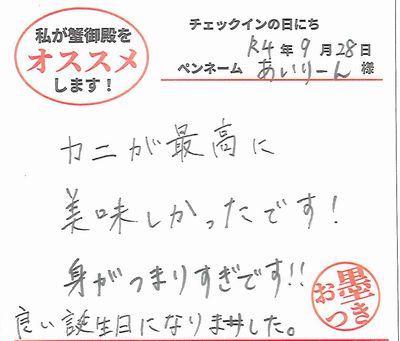 私が蟹御殿を
オススメ
します！
チェックインの日にち
R4年9月28日
ペンネーム あいりーん 様
カニが最高に
美味しかったです！
身がつまりすぎです!!
良い誕生日になりました。
お墨つき